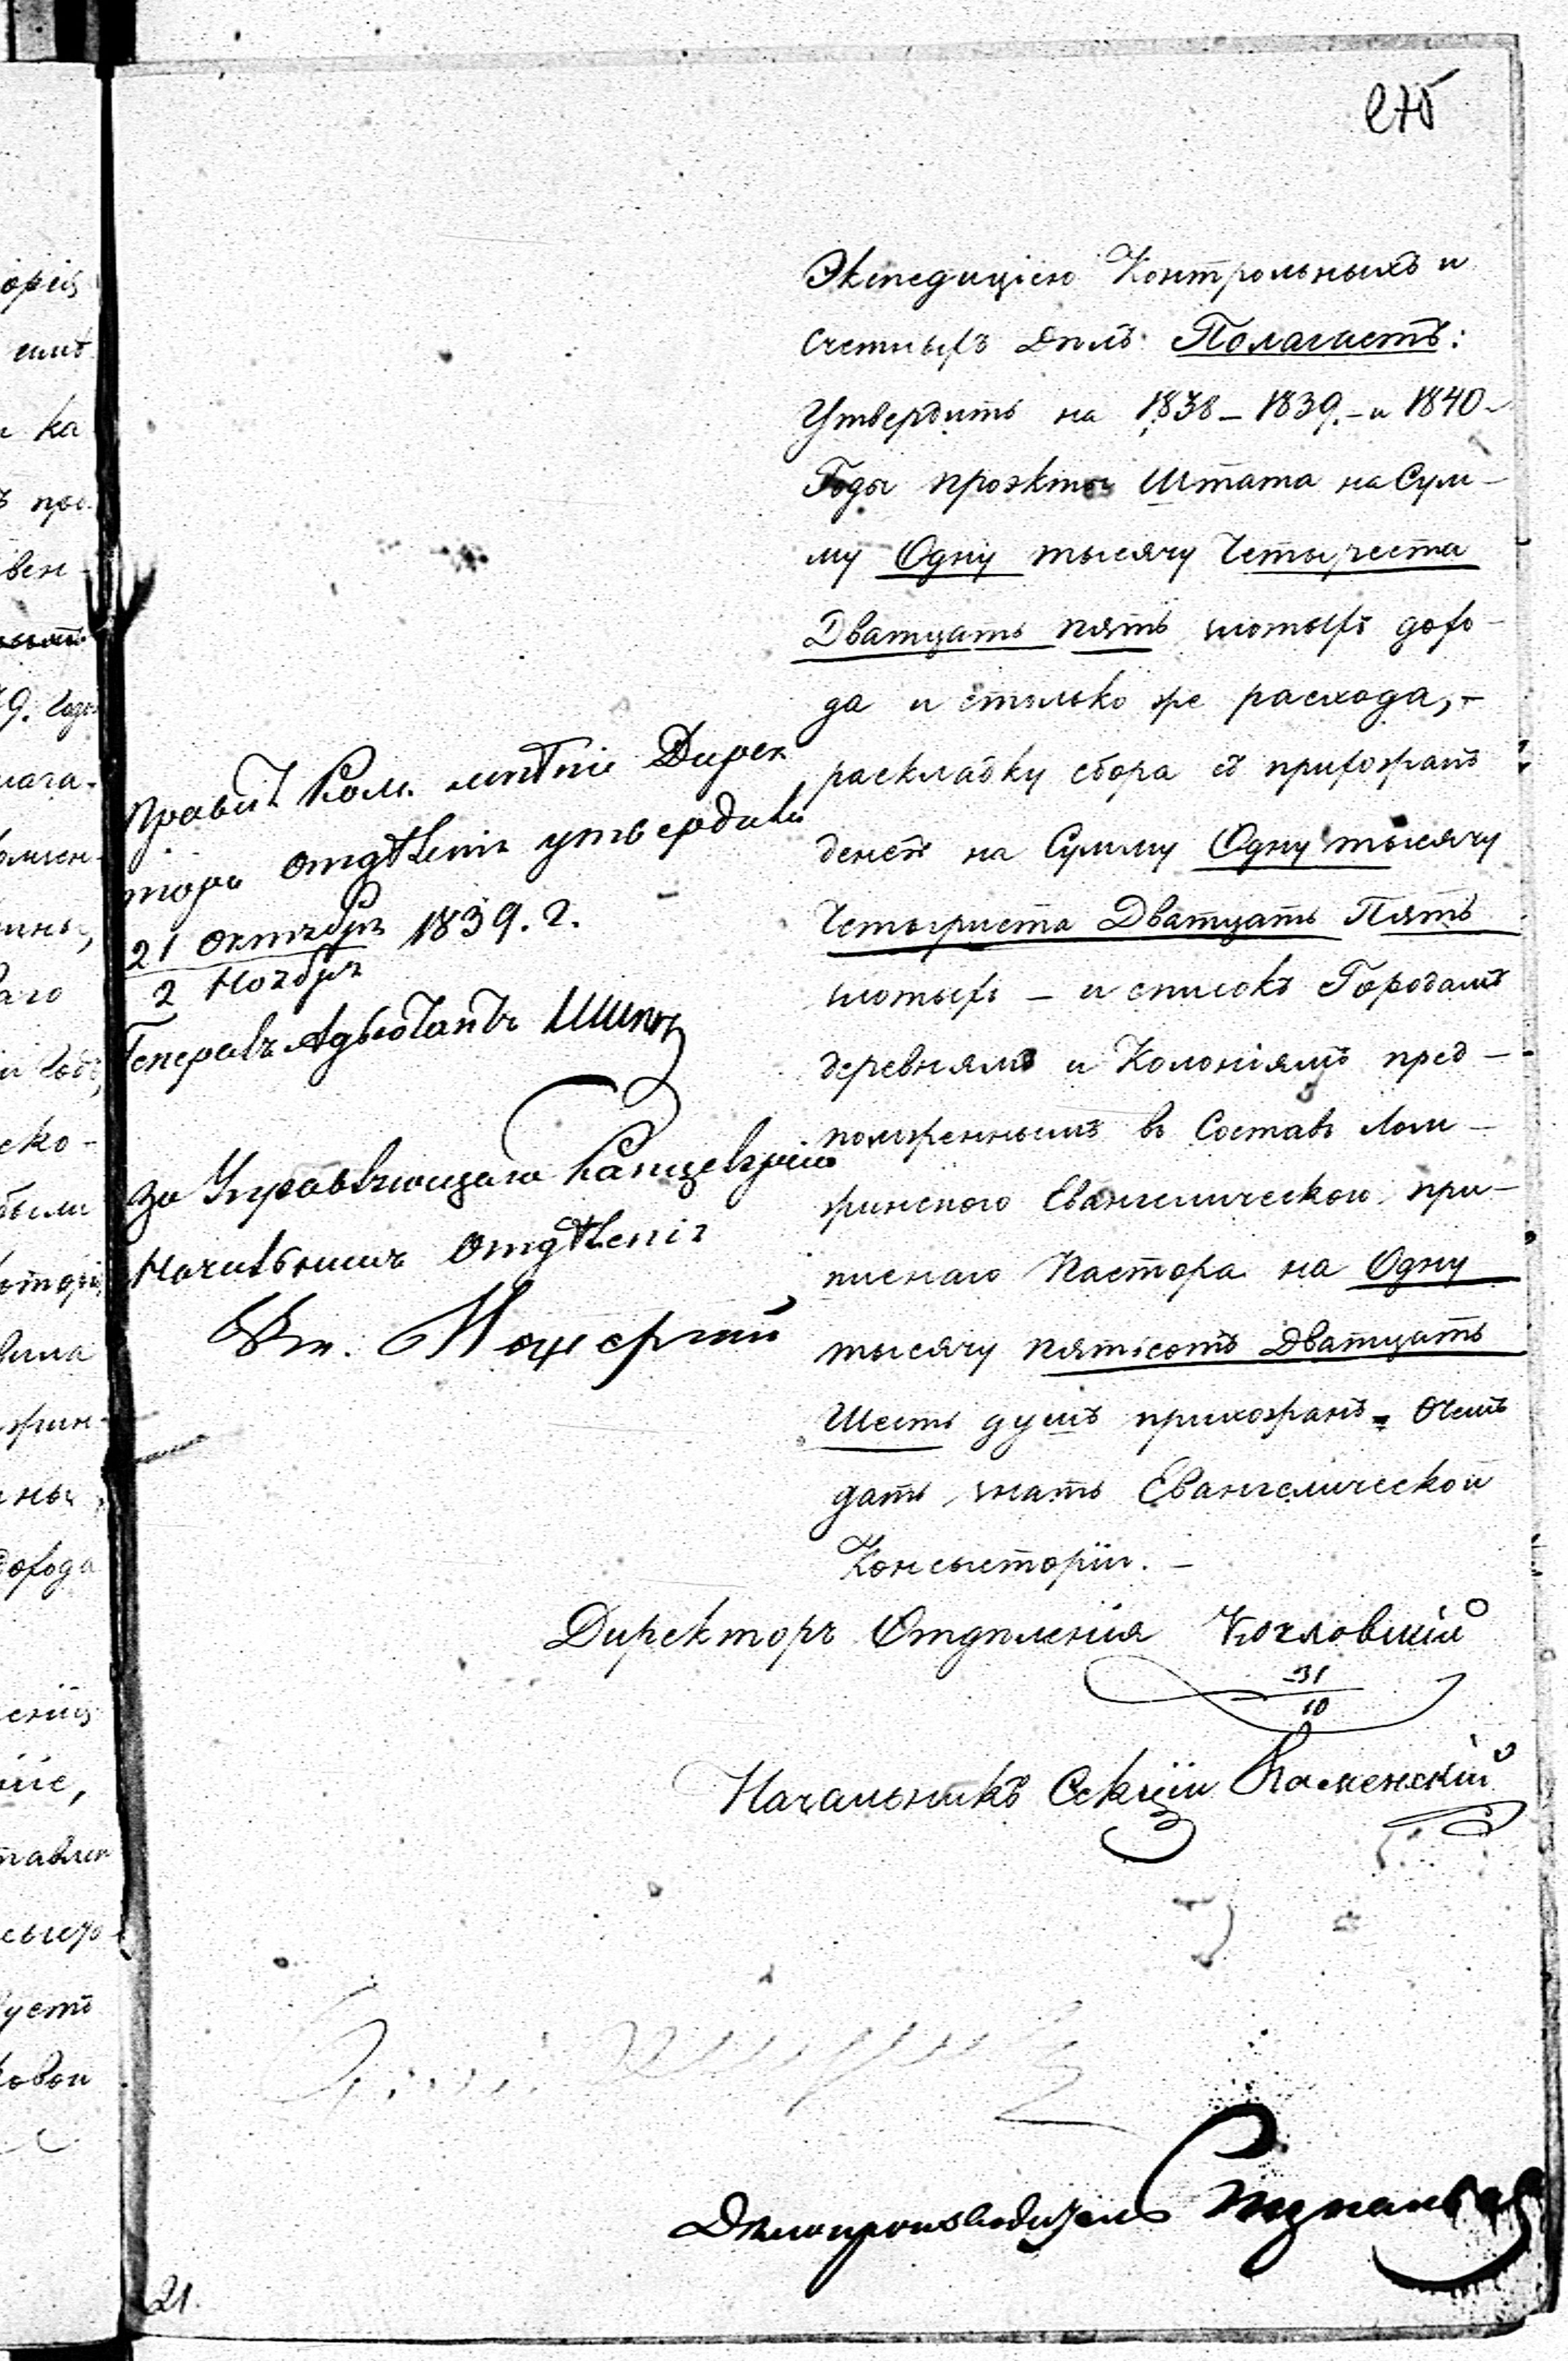 Экспедиціею Контрольныхъ и
Счетныхъ Дѣлъ Полагаетъ:
Утвердить на 1838 – 1839. – и 1840 –
Годы проэкты Штата на Сум–
му Одну тысячу Четыреста
Дватцать пять злотыхъ дохо–
да и столько же расхода, –
раскладку сбора съ прихожанъ
денегъ на Сумму Одну тысячу
Четыриста Дватцать Пять
злотыхъ – и списокъ Городамъ
деревнямъ и Колоніямъ пред –
положеннымъ въ Составъ Лом –
жинского Евангелическою при–
писнаго Пастора на Одну
тысячу пятьсотъ Дватцать
Шесть душъ прихожанъ. О чемъ
дать знать Евангелической
Консысторіи. –
Директоръ Отдѣленія
31
10
Начальникъ Секціи Каменскій
Правит. Ком. мнѣніе Дирек
тора Отдѣленія утвердила
21 Октября 1839. г.
2 Ноября
Генералъ Адъютантъ Шипов
За Управляющаго Канцеляріею
Начальникъ Отдѣленія
Дѣлопроизводитель
21.